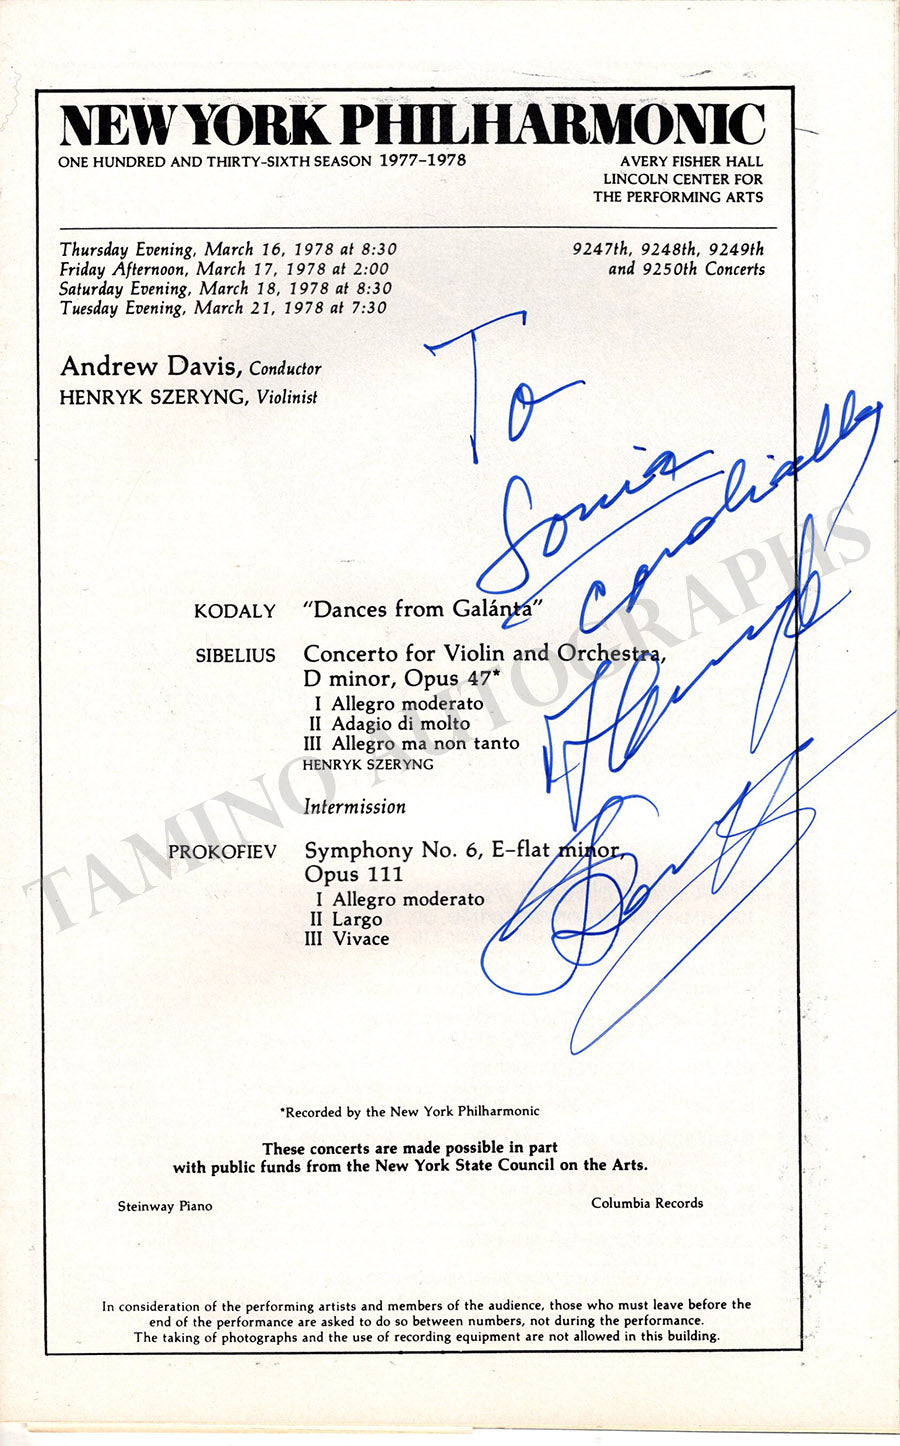 NEW YORK PHILHARMONIC
ONE HUNDRED AND THIRTY-SIXTH SEASON 1977-1978
AVERY FISHER HALL
LINCOLN CENTER FOR
THE PERFORMING ARTS
Thursday Evening, March 16, 1978 at 8:30
Friday Afternoon, March 17, 1978 at 2:00
Saturday Evening, March 18, 1978 at 8:30
Tuesday Evening, March 21, 1978 at 7:30
9247th, 9248th, 9249th
and 9250th Concerts
Andrew Davis, Conductor
HENRYK SZERYNG, Violinist
To
Sonia
cordially
Henryk
KODALY "Dances from Galánta"
SIBELIUS Concerto for Violin and Orchestra,
D minor, Opus 47*
I Allegro moderato
II Adagio di molto
III Allegro ma non tanto
HENRYK SZERYNG
Intermission
PROKOFIEV Symphony No. 6, E-flat minor,
Opus 111
I Allegro moderato
II Largo
III Vivace
*Recorded by the New York Philharmonic
These concerts are made possible in part
with public funds from the New York State Council on the Arts.
Steinway Piano
Columbia Records
In consideration of the performing artists and members of the audience, those who must leave before the
end of the performance are asked to do so between numbers, not during the performance.
The taking of photographs and the use of recording equipment are not allowed in this building.
TAMINO AUTOGRAPHS